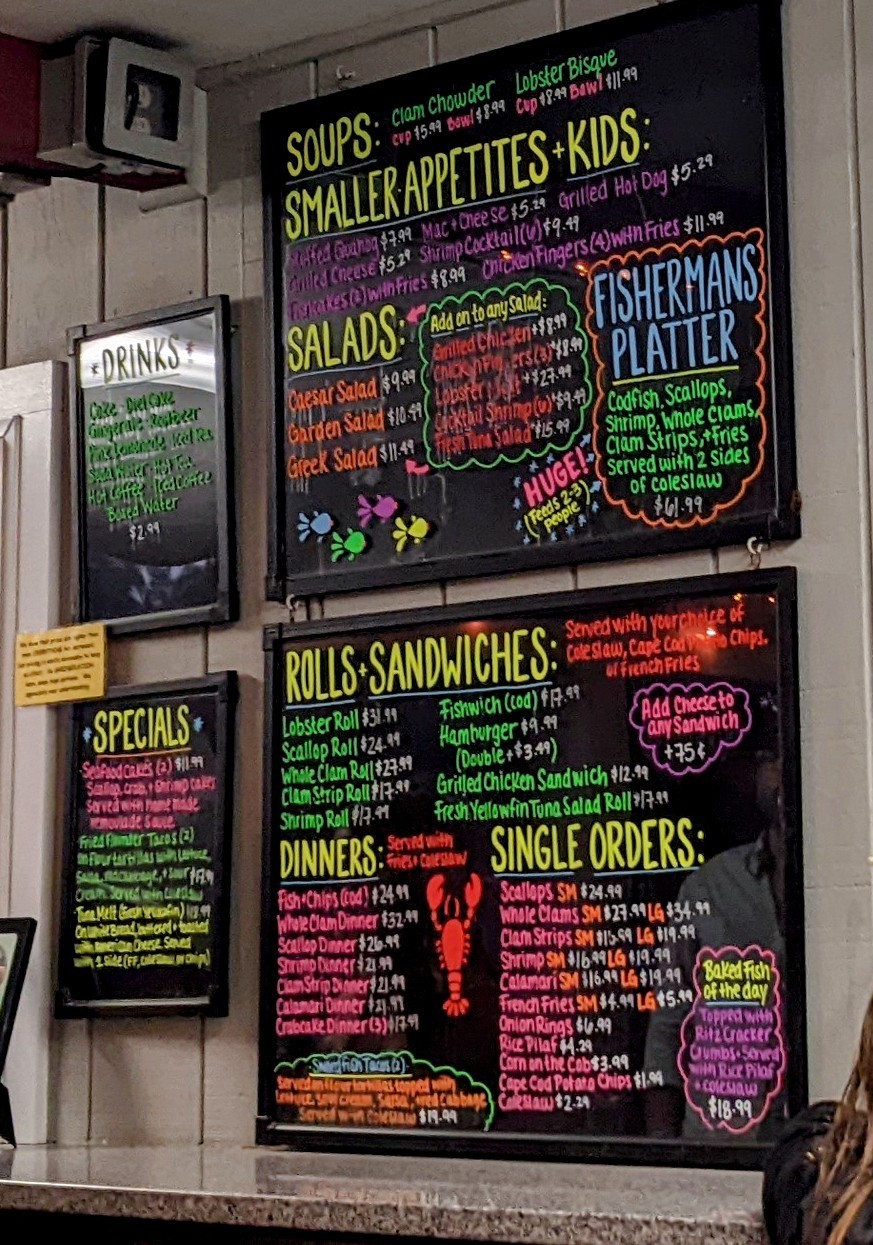 SOUPS:
Clam Chowder
Cup $5.99 Bowl $8.99
Lobster Bisque
Cup $8.99 Bowl $11.99
SMALLER APPETITES + KIDS:
Stuffed Quahog $7.99 Mac + Cheese $5.29 Grilled Hot Dog $5.29
Grilled Cheese $5.29 Shrimp Cocktail (6) $9.49
Fishcakes (2) with Fries $8.99 Chicken Fingers (4) with Fries $11.99
SALADS:
Caesar Salad $9.99
Garden Salad $10.49
Greek Salad $11.49
Add on to any Salad:
Grilled Chicken + $8.99
Chicken Fingers (3) $8.99
Lobster + $27.99
Cocktail Shrimp (6) $9.49
Fresh Tuna Salad $15.99
HUGE!
(Feeds 2-3
people)
FISHERMANS
PLATTER
Codfish, Scallops,
Shrimp, Whole Clams,
Clam Strips, + Fries
Served with 2 sides
of coleslaw
$61.99
DRINKS
Coke - Diet Coke
Gingerale - Rootbeer
Pink Lemonade, Iced Tea
Soda Water - Hot Tea
Hot Coffee, Iced Coffee
Boxed Water
$2.99
SPECIALS
Seafood Cakes (2) $11.99
Scallop, Crab, + Shrimp cakes
Served with Homemade
remoulade sauce
Fried Flounder Tacos (2)
on flour tortillas with lettuce,
Salsa, red cabbage, + sour $17.99
Cream. Served with Coleslaw
Tuna Melt (Fresh Yellowfin)
On White Bread, buttered + toasted
with American Cheese. Served
with 1 side (FF, coleslaw, or chips)
ROLLS + SANDWICHES:
Served with your choice of
Coleslaw, Cape Cod Potato Chips,
or French Fries
Lobster Roll $31.99
Scallop Roll $24.99
Whole Clam Roll $27.99
Clam Strip Roll $17.99
Shrimp Roll $17.99
Fishwich (cod) $17.99
Hamburger $9.99
(Double + $3.49)
Grilled Chicken Sandwich $12.99
Fresh Yellowfin Tuna Salad Roll $17.99
Add Cheese to
any Sandwich
+75¢
DINNERS:
Served with
Fries + Coleslaw
Fish + Chips (cod) $24.99
Whole Clam Dinner $32.99
Scallop Dinner $26.99
Shrimp Dinner $21.99
Clam Strip Dinner $21.99
Calamari Dinner $21.99
Crabcake Dinner (3) $17.99
Fish Tacos (2)
Served on flour tortillas topped with
lettuce, sour cream, salsa, + red cabbage
Served with Coleslaw $19.99
SINGLE ORDERS:
Scallops SM $24.99
Whole Clams SM $27.99 LG $34.99
Clam Strips SM $15.99 LG $19.99
Shrimp SM $16.99 LG $19.99
Calamari SM $16.99 LG $19.99
French Fries SM $4.99 LG $5.99
Onion Rings $6.99
Rice Pilaf $4.29
Corn on the Cob $3.99
Cape Cod Potato Chips $1.99
Coleslaw $2.29
Baked Fish
of the day
Topped with
Ritz Cracker
Crumbs + Served
with Rice Pilaf
+ coleslaw
$18.99